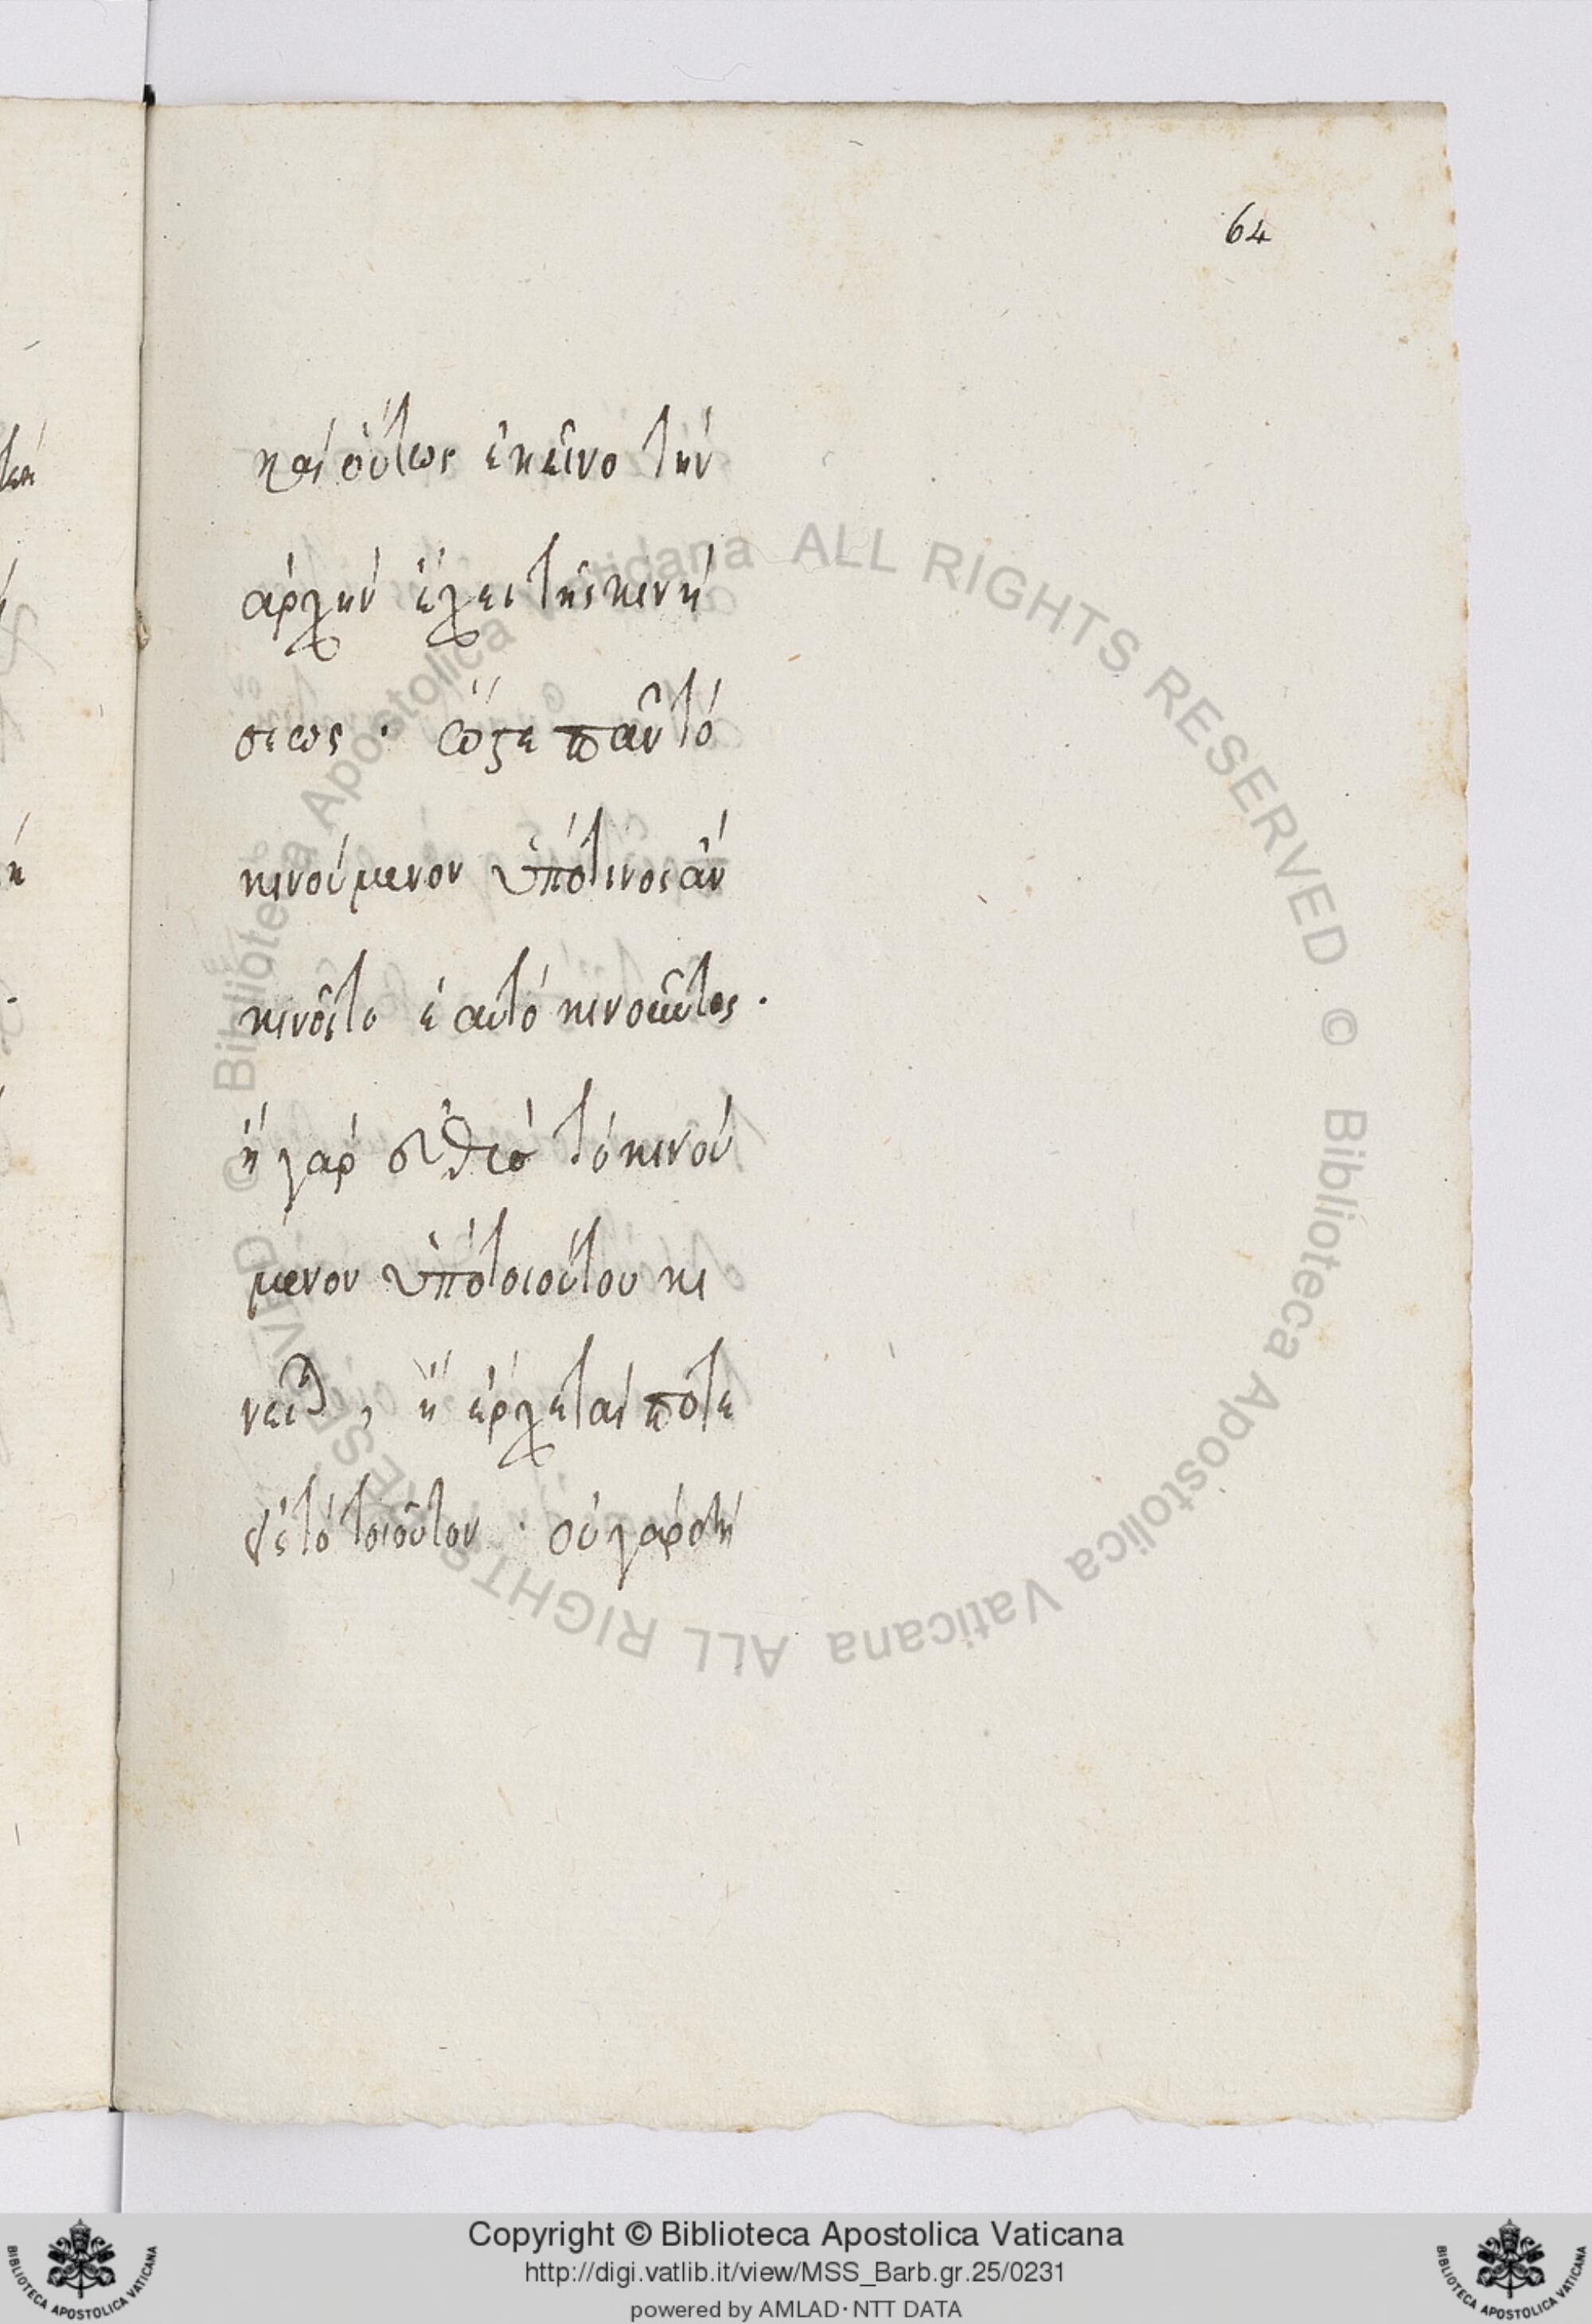 64
καὶ οὕτως ἐκεῖνο τὴν
ἀρχὴν ἔχει τῆς κινή
σεως · ὥστε πᾶν τὸ
κινούμενον ὑπό τινος ἂν
κινοῖτο ἑαυτὸ κινοῦντος ·
ἢ γὰρ τὸ κινού
μενον ὑπὸ τοιούτου κι
, ἢ ἔρχεταί ποτε
τὸ τοιοῦτον · οὐ γὰρ
© Biblioteca Apostolica Vaticana ALL RIGHTS RESERVED © Biblioteca Apostolica Vaticana ALL RIGHTS RESERVED
Copyright © Biblioteca Apostolica Vaticana
http://digi.vatlib.it/view/MSS_Barb.gr.25/0231
powered by AMLAD·NTT DATA
BIBLIOTECA APOSTOLICA VATICANA
BIBLIOTECA APOSTOLICA VATICANA